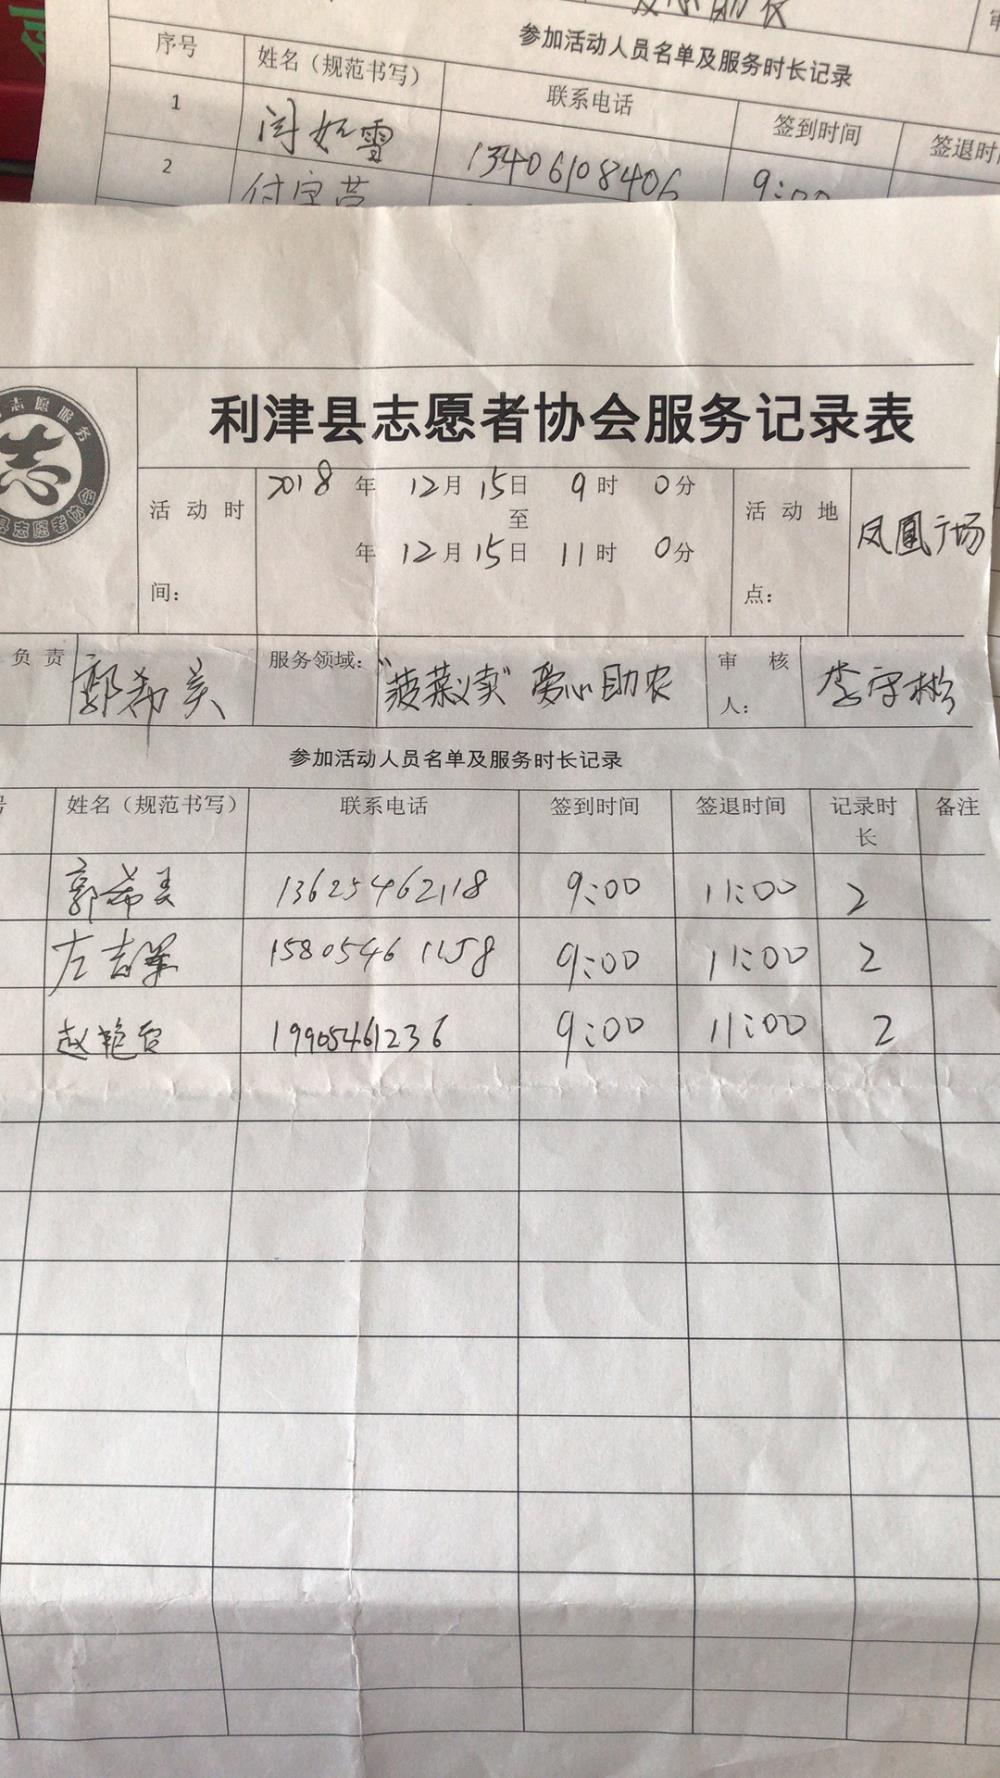 参加活动人员名单及服务时长记录
序号 姓名（规范书写） 联系电话 签到时间 签退时
1 闫如雪 13406108406 9:00
2
利津县志愿者协会服务记录表
活动时间： 2018年12月15日9时0分
至
年12月15日11时0分
活动地点： 凤凰广场
负责 郭希美 服务领域： “菠菜义卖”爱心助农 审核人： 李守彬
参加活动人员名单及服务时长记录
号 姓名（规范书写） 联系电话 签到时间 签退时间 记录时长 备注
郭希美 13625462118 9:00 11:00 2
左志军 15805461158 9:00 11:00 2
赵艳 19905461236 9:00 11:00 2